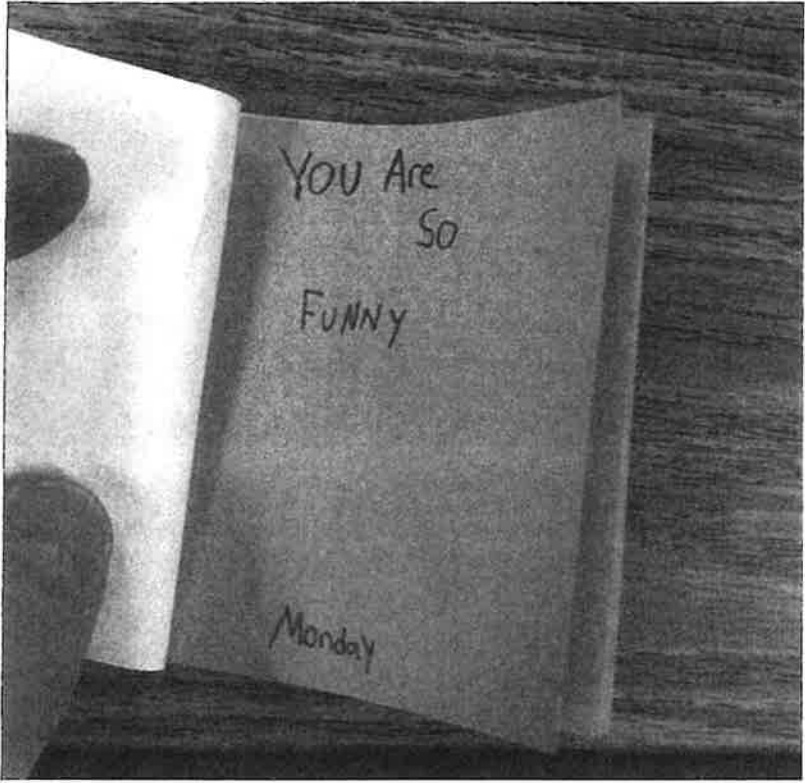 You Are
So
Funny
Monday